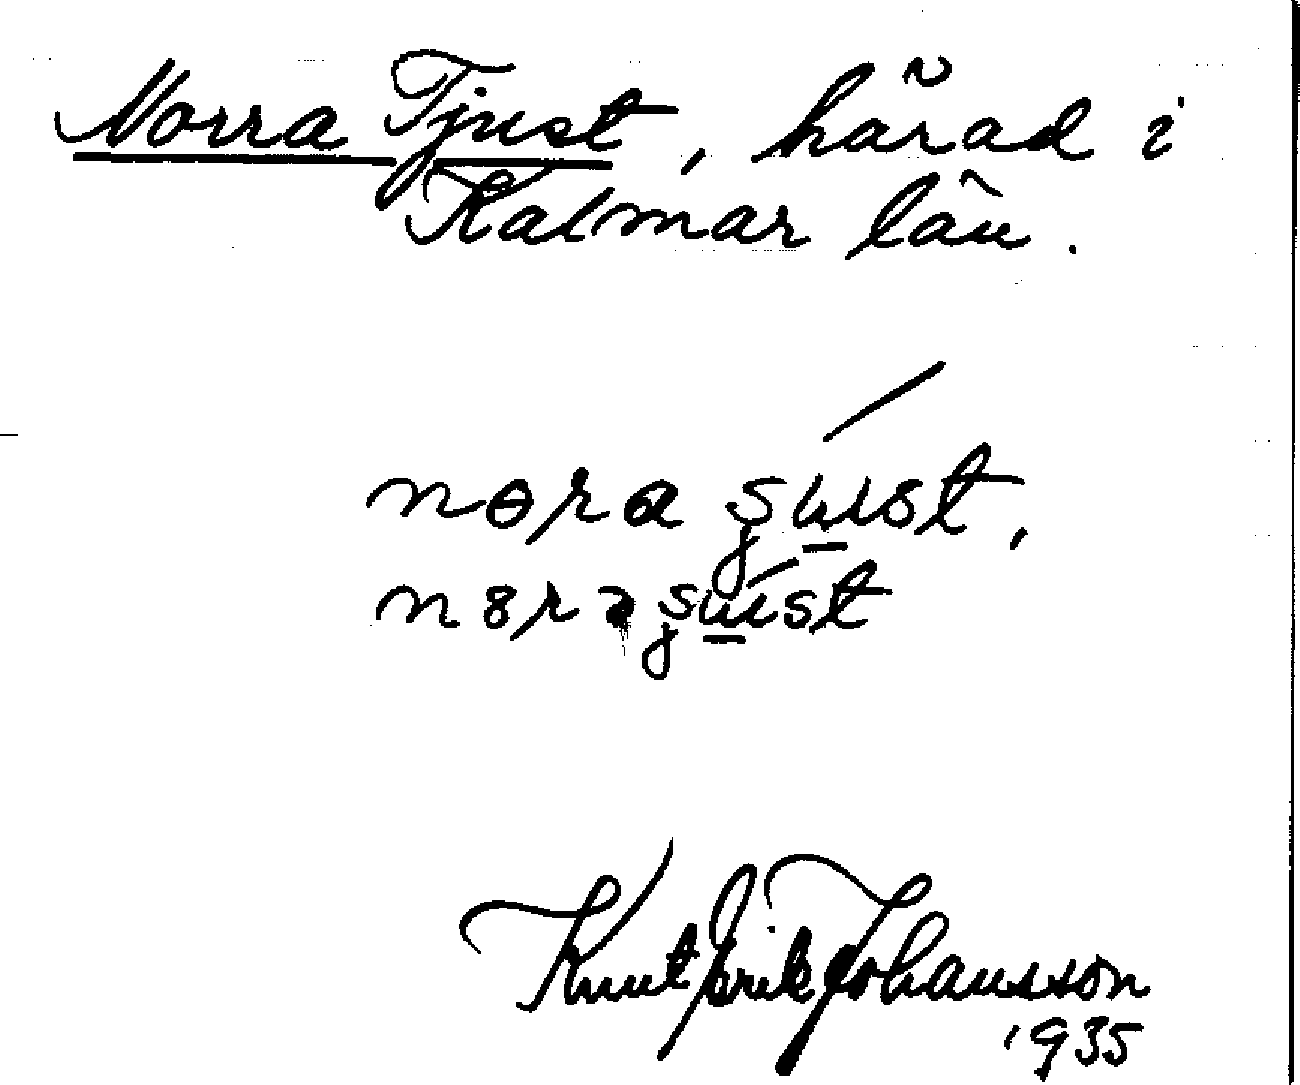 Norra Tjust, härad i
Kalmar län.
nɵra ʂu̲ɩst,
n8rə ʂu̲ɩst
Knut Erik Johansson
1935